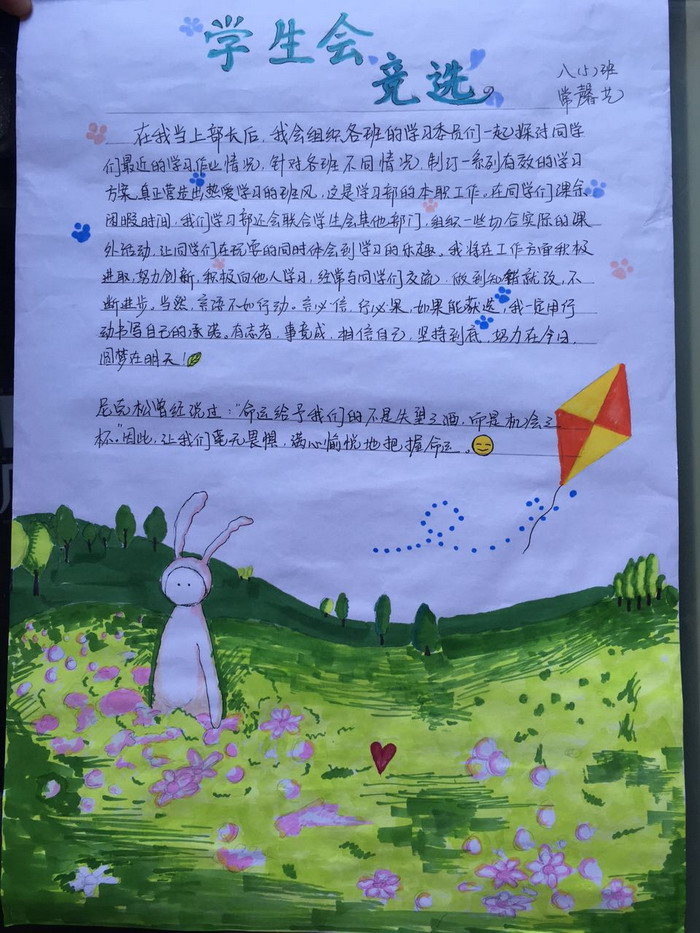 学生会
竞选
八(5)班
常馨艺
在我当上部长后，我会组织各班的学习委员们一起探讨同学
们最近的学习作业情况，针对各班不同情况，制订一系列有效的学习
方案，真正营造出热爱学习的班风，这是学习部的本职工作。在同学们课余
闲暇时间，我们学习部还会联合学生会其他部门，组织一些切合实际的课
外活动，让同学们在玩耍的同时体会到学习的乐趣。我将在工作方面积极
进取，努力创新，积极向他人学习，经常与同学们交流，做到知错就改，不
断进步。当然，言语不如行动。言必信，行必果，如果能获选，我一定用行
动书写自己的承诺。有志者，事竟成，相信自己，坚持到底，努力在今日，
圆梦在明天！
尼克松曾经说过：“命运给予我们的不是失望之酒，而是机会之
杯。”因此，让我们毫无畏惧，满心愉悦地把握命运。